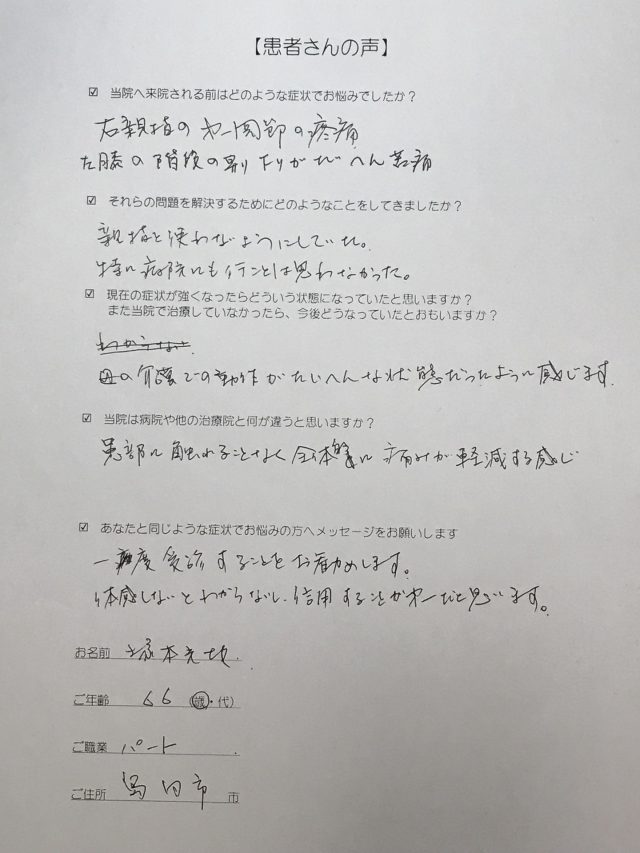 【患者さんの声】
☑ 当院へ来院される前はどのような症状でお悩みでしたか？
右親指の第一関節の疼痛
左膝の階段の昇りがたいへん苦痛
☑ それらの問題を解決するためにどのようなことをしてきましたか？
親指を使わなようにしていた。
特に病院にも行ことは思わなかった。
☑ 現在の症状が強くなったらどういう状態になっていたと思いますか？
また当院で治療していなかったら、今後どうなっていたとおもいますか？
母の介護での動作がたいへんな状態だったように感じます
☑ 当院は病院や他の治療院と何が違うと思いますか？
患部に触れることなく全体に痛みが軽減する感じ
☑ あなたと同じような症状でお悩みの方へメッセージをお願いします
一度受診することをお勧めします。
体感しないとわからないし、信用することが第一だと思います。
お名前 塚本
ご年齢 66 (歳・代)
ご職業 パート
ご住所 島田市 市